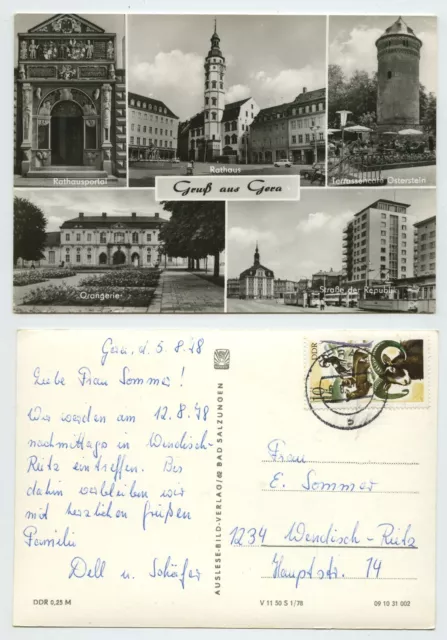 Rathausportal
Rathaus
Terrassencafé Osterstein
Gruß aus Gera
Orangerie
Straße der Republik
Gera, d. 5.8.78
Liebe Frau Sommer!
Wir werden am 12.8.78
nachmittags in Wendisch-
Rietz eintreffen. Bis
dahin verbleiben wir
mit herzlichen Grüßen
Familie
Dell u. Schäfer
DDR 0,25 M
AUSLESE-BILD-VERLAG/62 BAD SALZUNGEN
V 11 50 S 1/78
09 10 31 002
DDR
10
Frau
E. Sommer
1234 Wendisch-Rietz
Hauptstr. 14